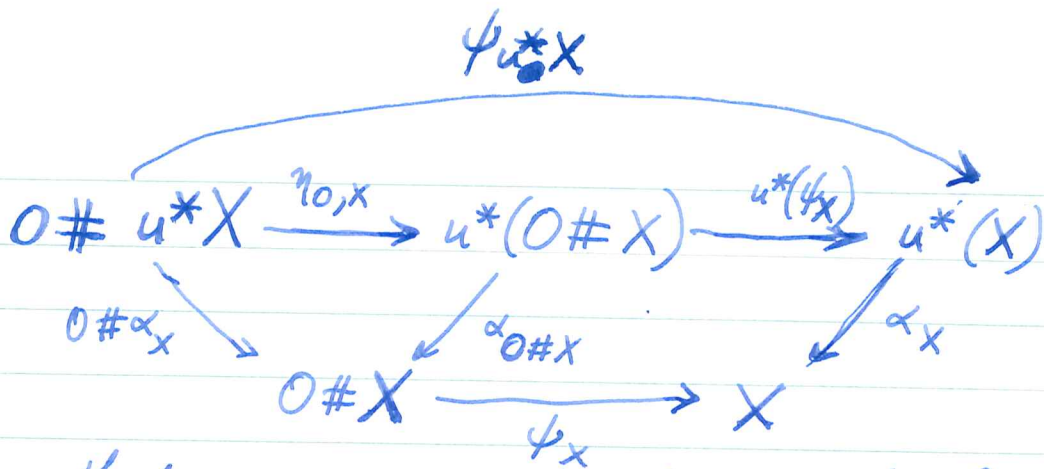 ψu*X
O # u*X η_{O,X} u*(O # X) u*(ψ_X) u*(X)
O # α_X α_{O#X} α_X
O # X ψ_X X